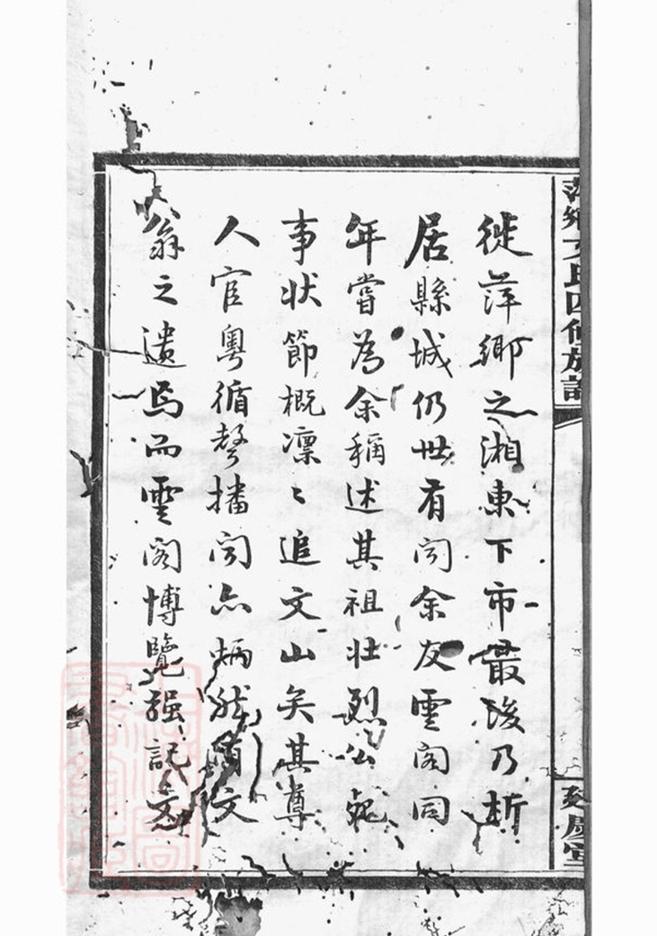 萍鄉文氏四修族譜
徙萍鄉之湘東下市最後乃析
居縣城仍世有聞余友雲閣同
年嘗為余稱述其祖壯烈公死
事狀節概凜〻追文山矣其尊
人官粵循聲播聞亦炳然有文
翁之遺焉而雲閣博覽強記